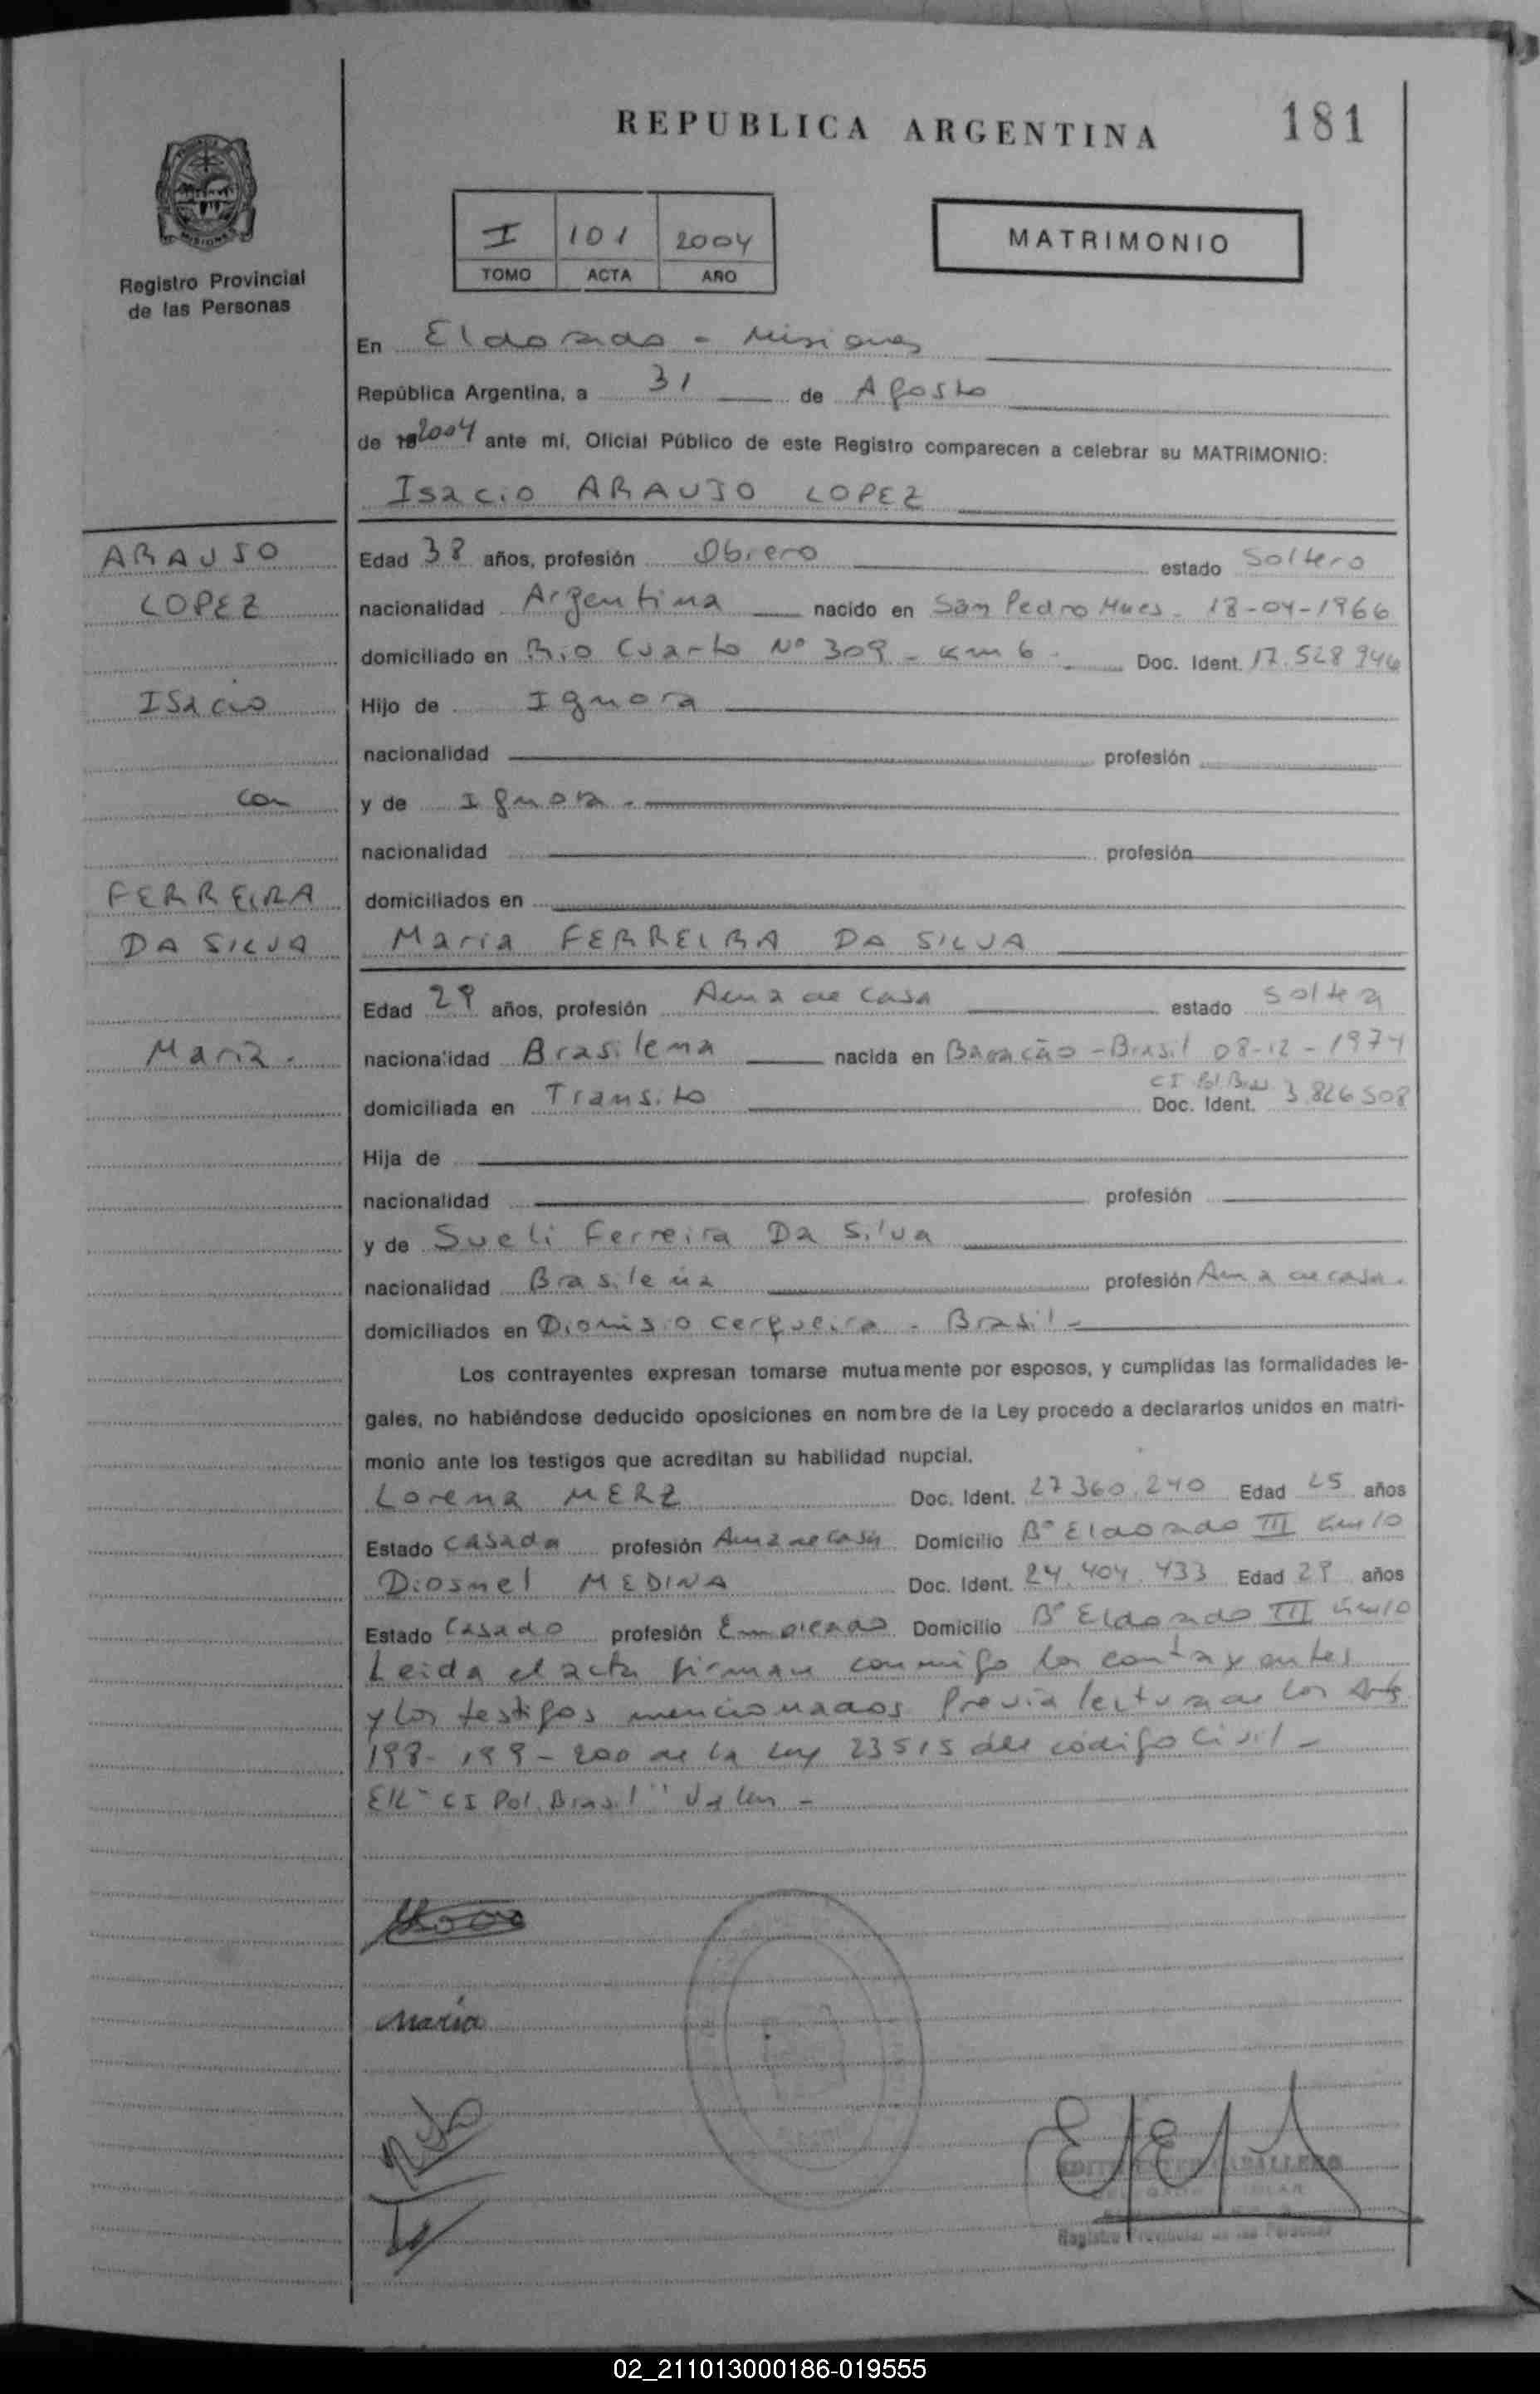 REPUBLICA ARGENTINA 181
Registro Provincial
de las Personas
I 101 2004
TOMO ACTA AÑO
MATRIMONIO
En Eldorado - Misiones
República Argentina, a 31 de Agosto
de 19 2004 ante mí, Oficial Público de este Registro comparecen a celebrar su MATRIMONIO:
Isacio ARAUJO LOPEZ
ARAUJO
LOPEZ
Isacio
con
FERREIRA
DA SILVA
Maria.
Edad 38 años, profesión Obrero estado Soltero
nacionalidad Argentina nacido en San Pedro Mnes. 18-04-1966
domiciliado en Rio Cuarto Nº 309 - Km 6. Doc. Ident. 17.528 946
Hijo de Ignora
nacionalidad profesión
y de Ignora.
nacionalidad profesión
domiciliados en
Maria FERREIRA DA SILVA
Edad 29 años, profesión Ama de Casa estado Soltera
nacionalidad Brasileña nacida en Baracão - Brasil 08-12-1974
CI Pol. Bras.
domiciliada en Transito Doc. Ident. 3.826508
Hija de
nacionalidad profesión
y de Sueli Ferreira Da Silva
nacionalidad Brasileña profesión Ama de casa.
domiciliados en Dionisio Cerqueira - Brasil -
Los contrayentes expresan tomarse mutuamente por esposos, y cumplidas las formalidades le-
gales, no habiéndose deducido oposiciones en nombre de la Ley procedo a declararlos unidos en matri-
monio ante los testigos que acreditan su habilidad nupcial.
Lorena MERZ Doc. Ident. 27360.240 Edad 25 años
Estado Casada profesión Ama de casa Domicilio Bº Eldorado III Km 10
Diosnel MEDINA Doc. Ident. 24.404.433 Edad 29 años
Estado Casado profesión Empleado Domicilio Bº Eldorado III Km 10
Leida el acta firman conmigo los contrayentes
y los testigos mencionados Previa lectura de los Arts
198-199-200 de la Ley 23515 del código Civil -
E/L "CI Pol. Brasil" Valen -
Maria
CABALLERO
Registro Provincial de las Personas
02_211013000186-019555